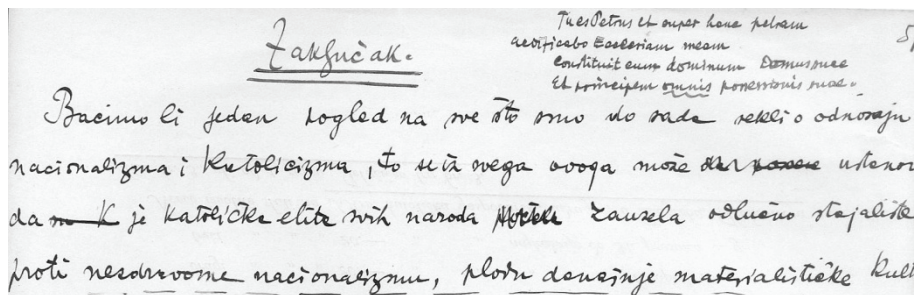 Zaključak.
Tu es Petrus et super hanc petram
aedificabo Ecclesiam meam
Constituit eum dominum Domus suae
Et principem omnis possessionis suae.
Bacimo li jedan pogled na sve što smo do sada rekli o odnosaju
nacionalizma i Katolicizma, to se iz svega ovoga može ustanov
da je katoličke elite svih naroda zauzela odlučno stajalište
proti nezdravome nacionalizmu, plodu današnje materialističke kult